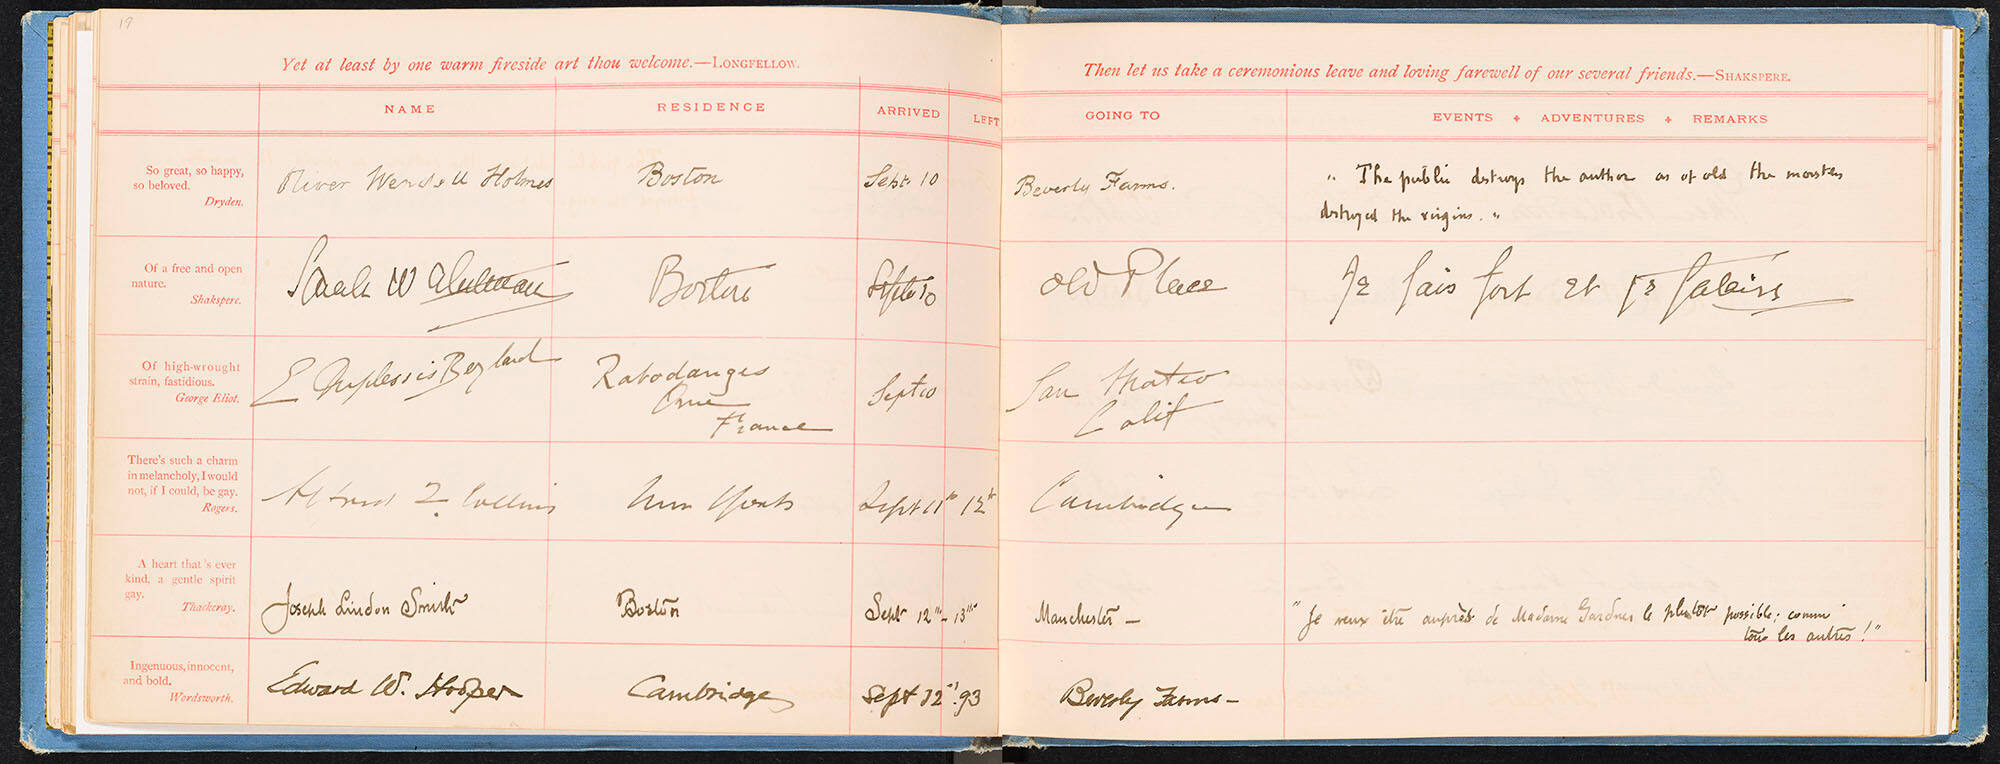 19
Yet at least by one warm fireside art thou welcome.—LONGFELLOW.
NAME RESIDENCE ARRIVED LEFT
So great, so happy,
so beloved.
Dryden.
Oliver Wendell Holmes Boston Sept 10
Of a free and open
nature.
Shakspere.
Sarah W Boston Sept 10
Of high-wrought
strain, fastidious.
George Eliot.
E Duplessis Beylard Rabodanges
Orne
France
Sept 10
There's such a charm
in melancholy, I would
not, if I could, be gay.
Rogers.
Alfred Q. Collins New York Sept 11th 12th
A heart that's ever
kind, a gentle spirit
gay.
Thackeray.
Joseph Lindon Smith Boston Sept 12th - 13th
Ingenuous, innocent,
and bold.
Wordsworth.
Edward W. Hooper Cambridge Sept 12 '93
Then let us take a ceremonious leave and loving farewell of our several friends.—SHAKSPERE.
GOING TO EVENTS + ADVENTURES + REMARKS
Beverly Farms. " The public destroys the author as of old the monsters
destroyed the virgins. "
Old Place Je fais fort et
San Mateo
Calif
Cambridge
Manchester — "Je veux être auprès de Madame Gardner le plutôt possible; comme
tous les autres!"
Beverly Farms —